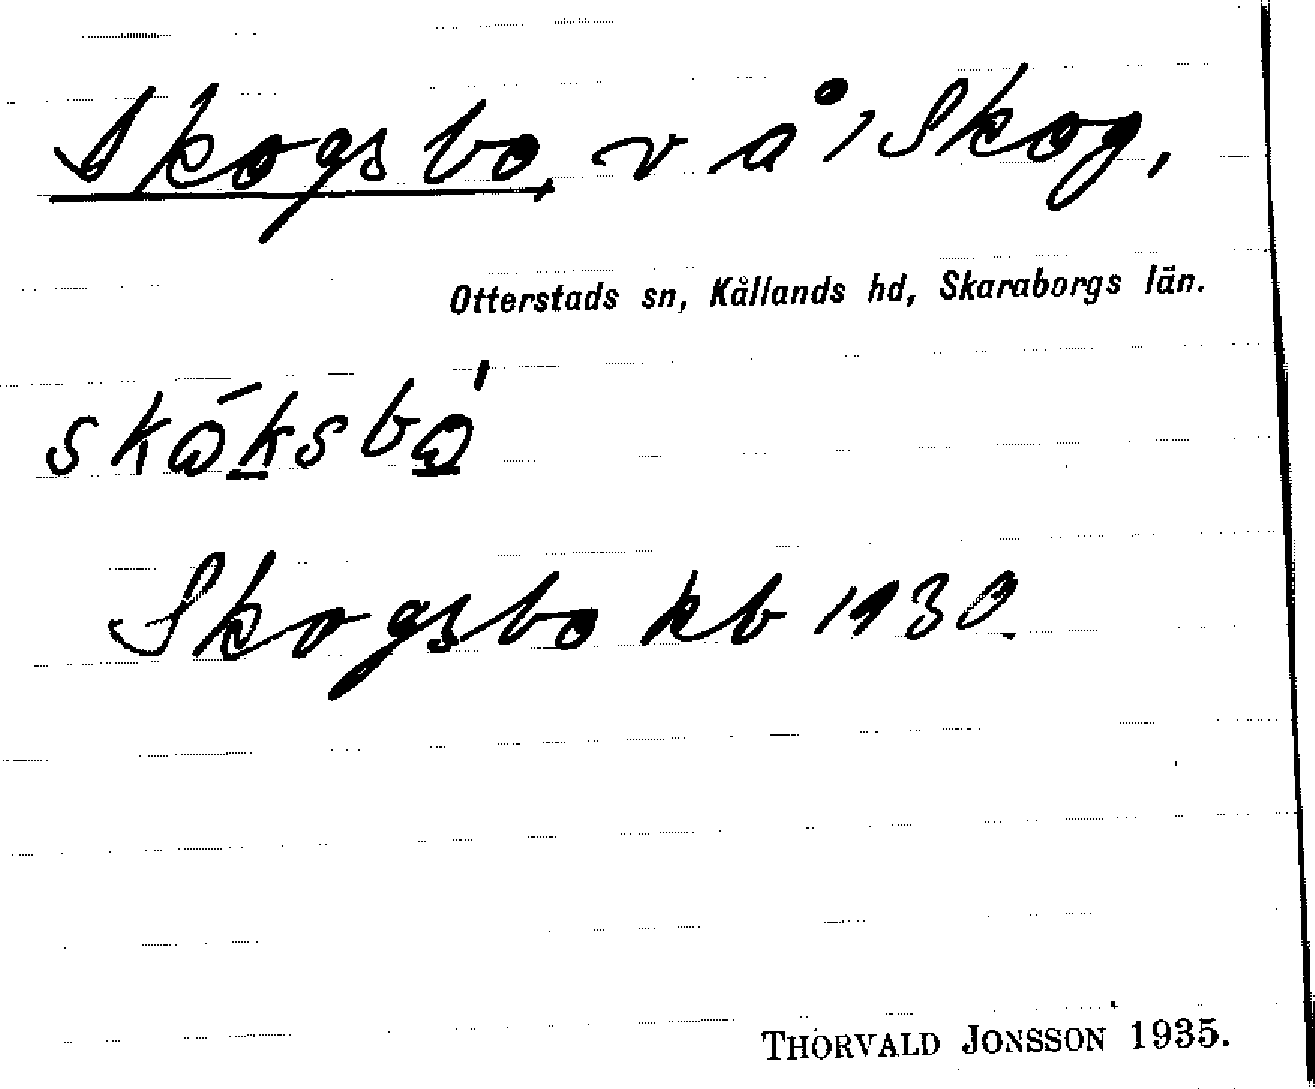 Skogsbo, v å / Skog,
Otterstads sn, Kållands hd, Skaraborgs län.
Skogsbo kb 1930.
THORVALD JONSSON 1935.